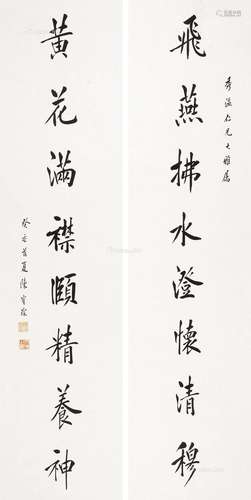 飛燕拂水澄懷清穆
黃花滿襟頤精養神
仁兄大雅屬
癸亥首夏陳寶琛